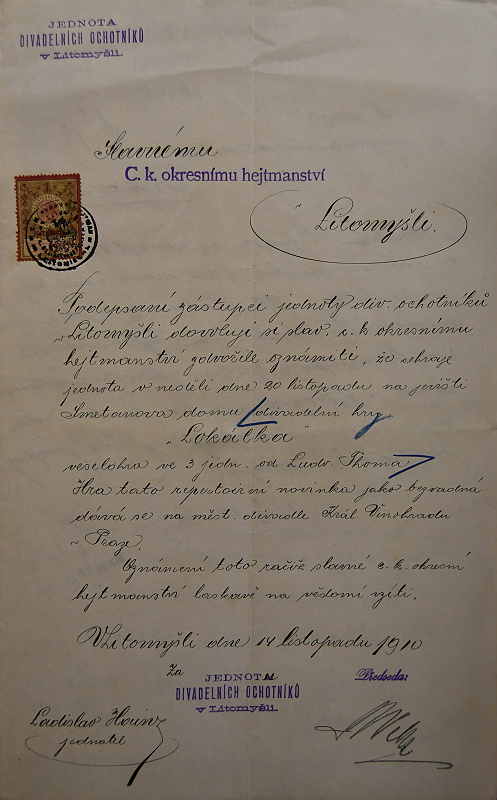 JEDNOTA
DIVADELNÍCH OCHOTNÍKŮ
v Litomyšli.
Slavnému
C. k. okresnímu hejtmanství
v Litomyšli.
Podepsaní zástupci jednoty div. ochotníků
v Litomyšli dovolují si slav. c. k. okresnímu
hejtmanství zdvořile oznámiti, že sehraje
jednota v neděli dne 20 listopadu na jevišti
Smetanova domu divadelní hry
"Lokálka"
veselohra ve 3 jedn. od Ludv. Thoma.
Hra tato repertoirní novinka jako bezvadná
dává se na měst. divadle Král. Vinohradů
v Praze.
Oznámení toto račiž slavné c. k. okresní
hejtmanství laskavě na vědomí vzíti.
V Litomyšli dne 14 listopadu 1910
Za
JEDNOTA
DIVADELNÍCH OCHOTNÍKŮ
v Litomyšli.
Předseda:
Ladislav
jednatel